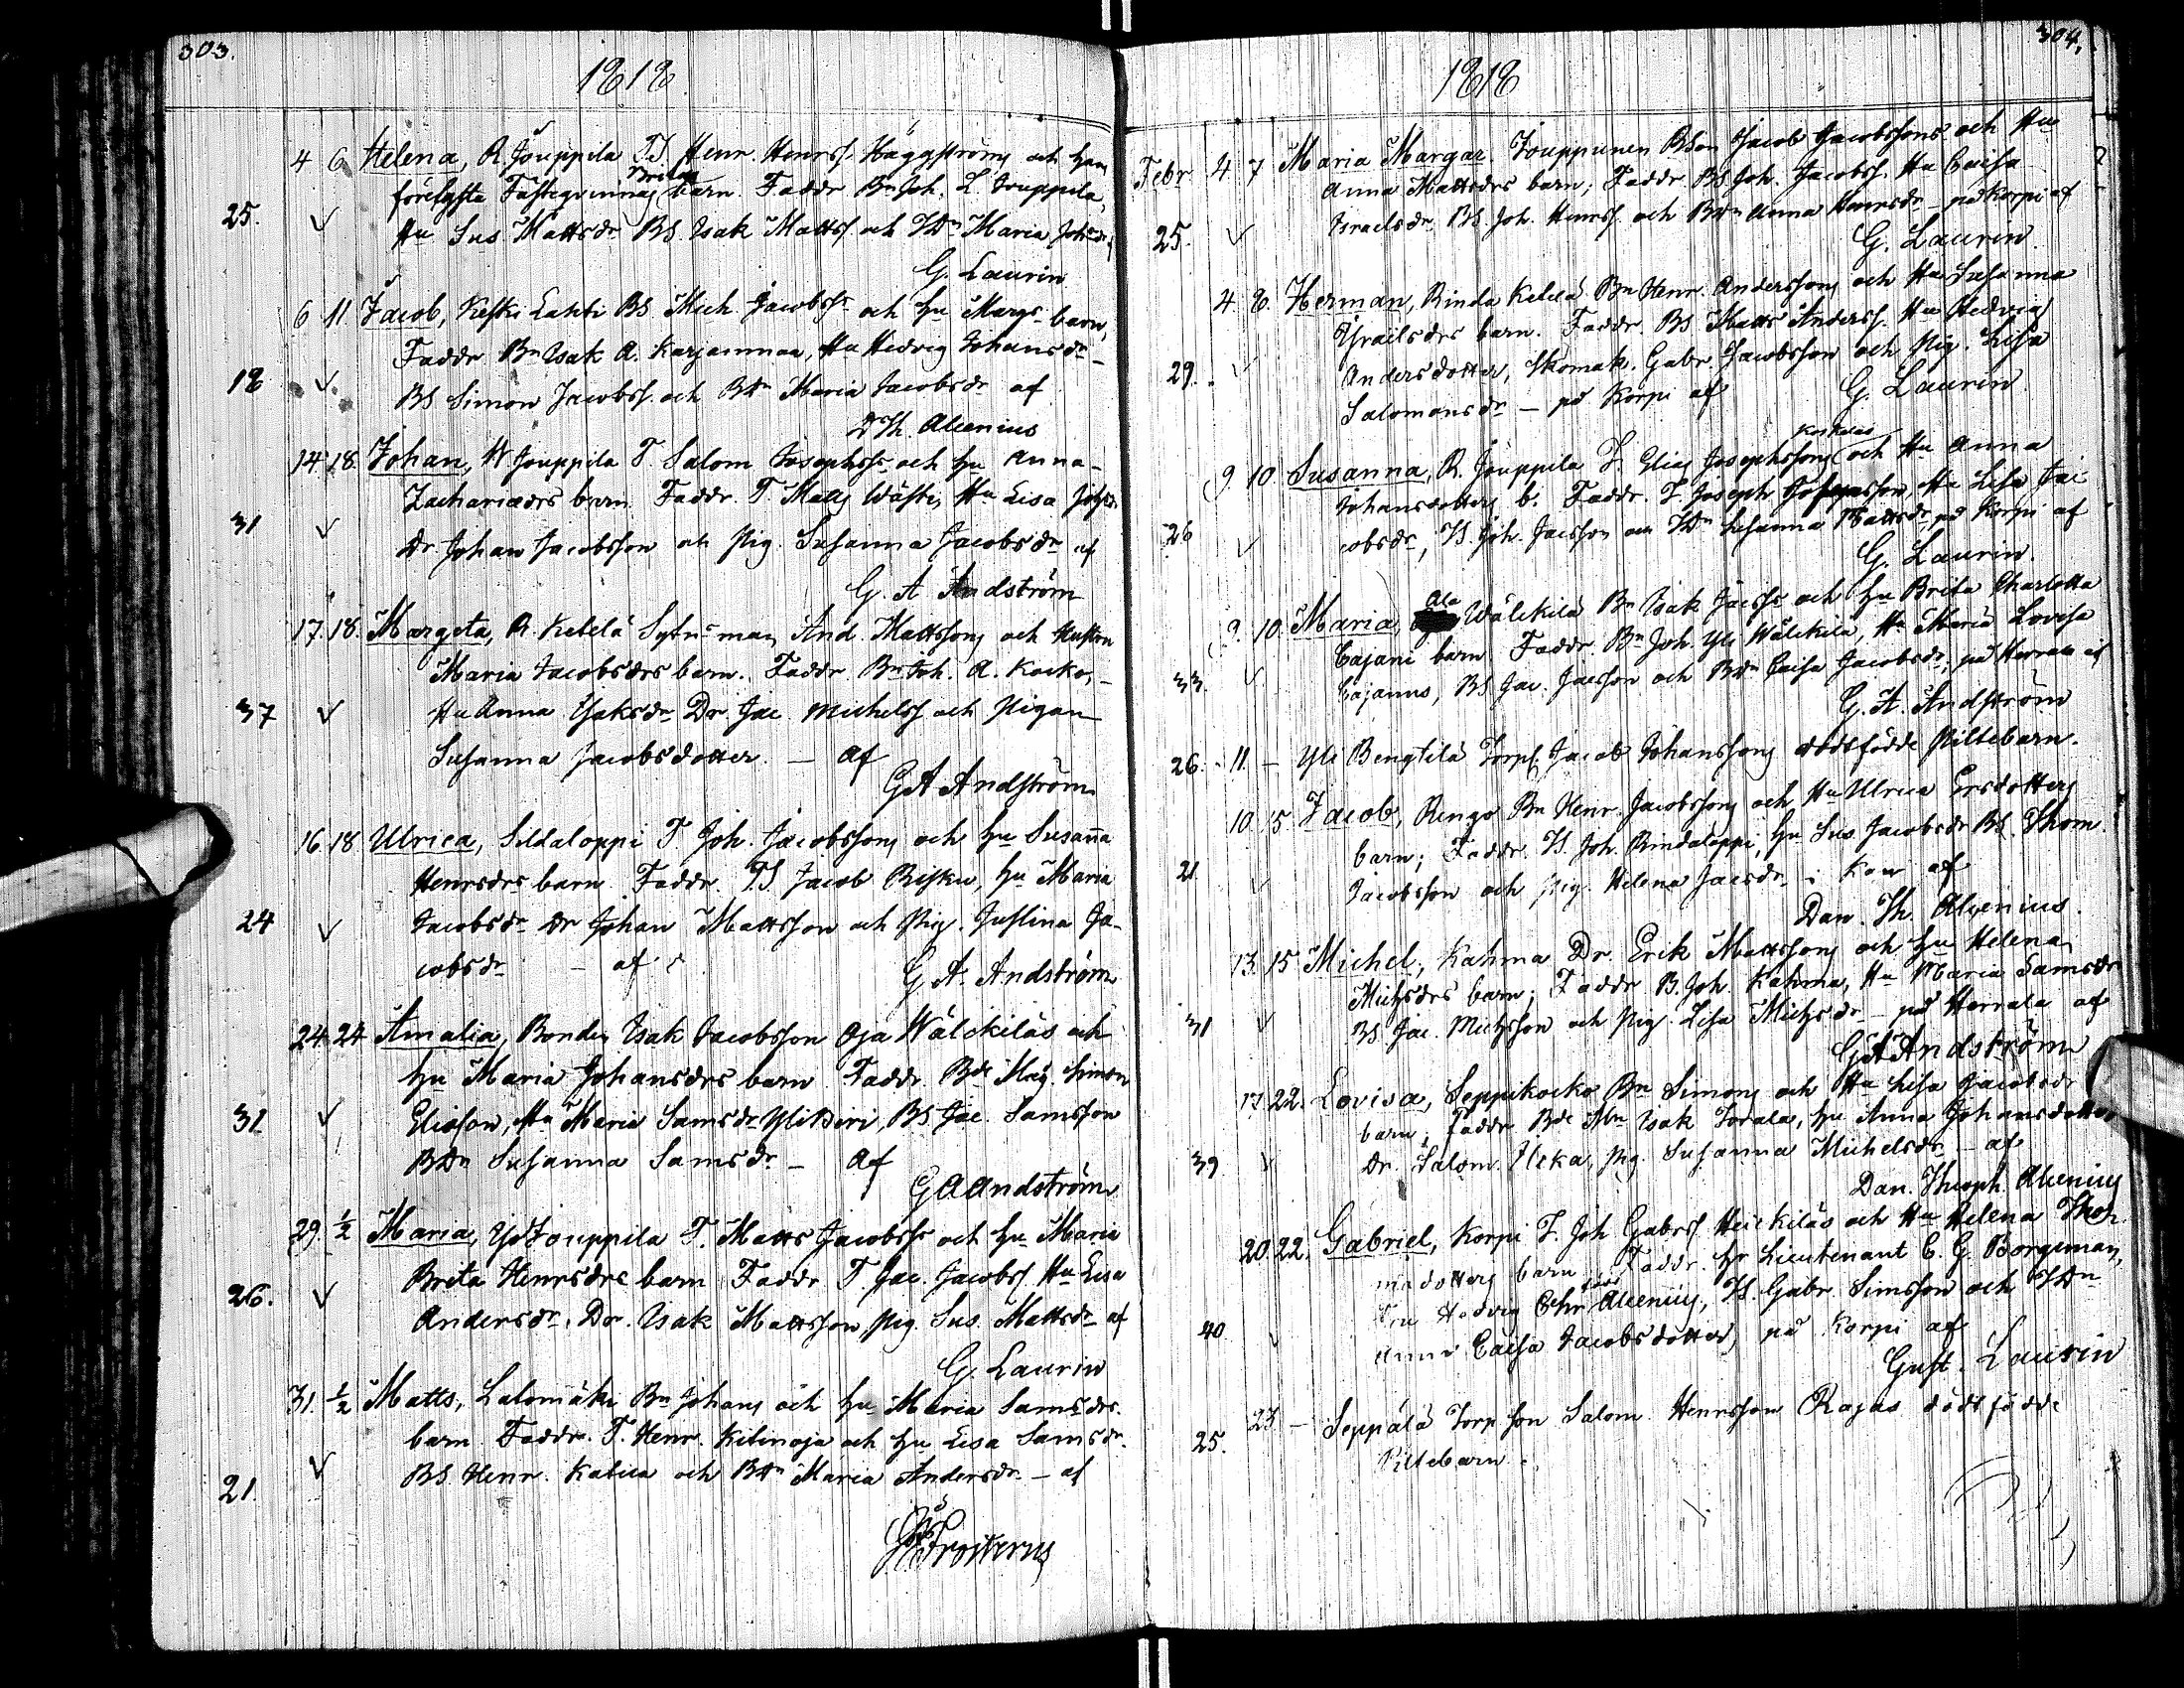 303.
1818
4 6 Helena, R. Jouppila TS. Henr. Henrss. Häggströms och hans
förelofta Fästeqvinnas Britas barn. Faddr Bn Joh. L. Jouppila,
25. Hu Sus Mattsdr BS. Isak Mattss och TDn Maria Johsdr
G. Laurin
6 11 Jacob, Keski Lahti BS Mich. Jacobss och hu Margs barn,
Faddr Bn Isak A. Karjanmaa, Hu Hedvig Johansdr
18 BS Simon Jacobss. och BDn Maria Jacobsdr af
D Th. Alcenius
14 18. Johan, W Jouppila T. Salom Josephss och hu Anna
Zachariædrs barn Faddr. T. Matts Wästi, Hu Lisa
31 Dr. Johan Jacobsson och Pig. Susanna Jacobsdr af
G. A Andström
17. 18. Margeta, R. Ketelä Sytnsmans And. Mattssons och Hustrun
Maria Jacobsdrs barn. Faddr Bn Joh. A. Kocko,
37 Hu Anna Isaksdr Dr. Jac. Michelss och Pigan
Susanna Jacobsdotter. — Af
G A Andström
16 18 Ulrica, Sildaloppi T. Joh. Jacobssons och hu Susanna
Henrsdrs barn Faddr. TS. Jacob Risku, hu Maria
24 Jacobsdr Dr Johan Mattsson och Pig. Justina Ja-
cobsdr — af
G A. Andström
24 24 Amalia, Bonden Isak Jacobsson Oja Wälckiläs och
hu Maria Johansdrs barn Faddr. Simon
31 Eliasson, Hu Maria Samsdr BS Jac. Samsson
BDn Susanna Samsdr — Af
G A Andström
29. ½ Maria, Jouppila T. Matts Jacobss och hu Maria
Brita Henrsdrs barn Faddr. T Jac. Jacobss Hu Lisa
26. Andersdr, Dr. Isak Mattsson, Pig. Sus. Mattsdr af
G. Laurin
31. ½ Matts, Lalomäki Bn Johans och hu Maria Samsdrs
barn Faddr. T. Henr. Kitinoja och hu Lisa Samsdr.
21. BS Henr. och BDn Maria Andersdr — af
Frosterus
304.
1818
Febr 4 7 Maria Margar. Jouppunen BSon Jacob Jacobssons och Hu
Anna Mattsdrs barn; Faddr. BS Joh. Jacobss. Hu Caisa
25. Israelsdr, BS. Joh. Henrss. och BDn Anna Henrsdr — på Korpi af
G. Laurin.
4. 8. Herman, Rinda Ketelä Bn Henr. Anderssons och Hu Susanna
Israelsdrs barn. Faddr. BS Matts Anderss. Hu Hedvig
29. Andersdotter, Skomak. Gabr. Jacobsson och Pig. Lisa
Salomonsdr — på Korpi af G. Laurin.
9. 10. Susanna, R. Jouppila T. Elias Josephssons Koskelas och Hu Anna
Johansdotters b. Faddr. T. Joseph Hu Lisa Ja-
26 cobsdr, TS. Joh. Jacsson och TDn Susanna Mattsdr på Korpi af
G. Laurin.
9. 10. Maria, Ala Wälckilä Bn Isak Jacss och hu Brita Charlotta
Cajani barn. Faddr. Bn Joh. Yli Wälckilä, Hu Maria Lovisa
33. Cajanus, BS Jac. Jacsson och BDn Caisa Jacobsdr, på Herrala af
G. A. Andström
26. 11. — Yli Bengtilä Torp. Jacob Johanssons dödfödde Piltebarn.
10. 15 Jacob, Rengo Bn Henr. Jacobssons och Hu Ulrica Ersdotters
barn; Faddr. TS. Joh. Rindaloppi, hu Sus. Jacobsdr BS. Thom
21 Jacobsson och Pig. Helena Jacsdr. i af
Dan. Th. Alcenius.
13. 15 Michel, Kahma Dr. Erik Mattssons och hu Helena
Michsdrs barn; Faddr B. Joh. Kahma, Hu Maria Samsdr
31 BS. Jac. Michsson och Pig. Lisa Michsdr — på Herrala af
G A Andström
17. 22. Lovisa, Seppikocko Bn Simons och Hu Lisa Jacobsdr
barn, Faddr Isak hu Anna Johansdotter,
39. Dr. Salom. Pig. Susanna Michelsdr — af
Dan. Theoph. Alcenius
20. 22. Gabriel, Korpi T. Joh Gabrss. Heickiläs och Hu Helena Tho-
madotters barn. Faddr. Hr Lieutenant C. G. Borgeman,
Fru Hedvig Alcenius, TS. Gabr. Simsson och TDn
40 Anna Caisa Jacobsdotter, på Korpi af
Gust. Laurin
23 — Seppälä Torpson Salom. Henrsson Rajas dödfödde
25. Piltebarn.